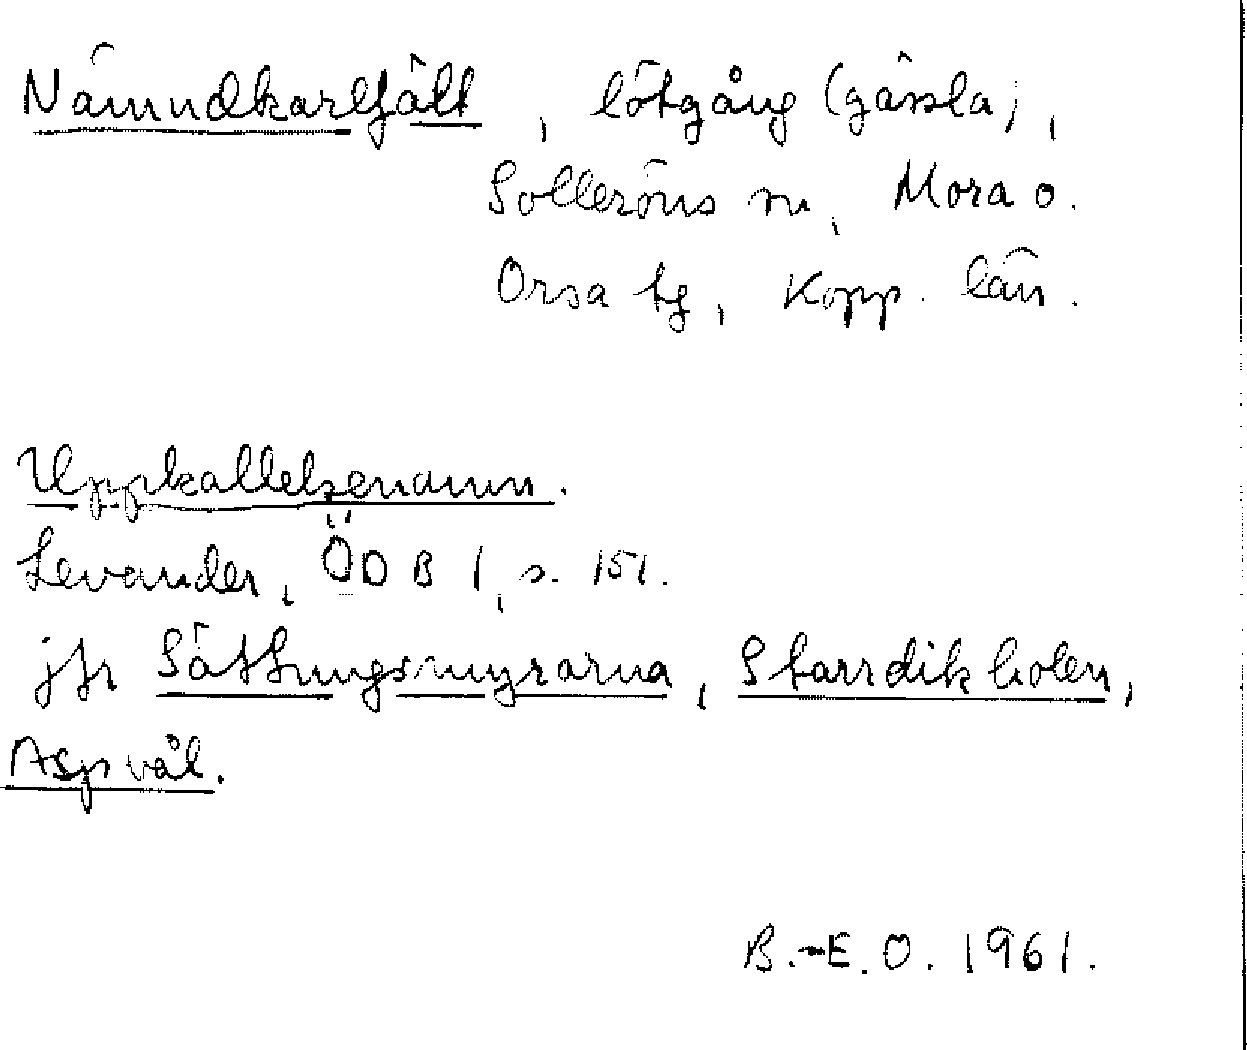 Nämndkarlfält, lötgång (gärsla),
Solleröns sn, Mora o.
Orsa tg, Kopp. län.
Uppkallelsenamn.
Levander, ÖDB 1, s. 151.
jfr Sättungsmyrarna, Starrdikholen,
Aspvål.
B.-E.O. 1961.